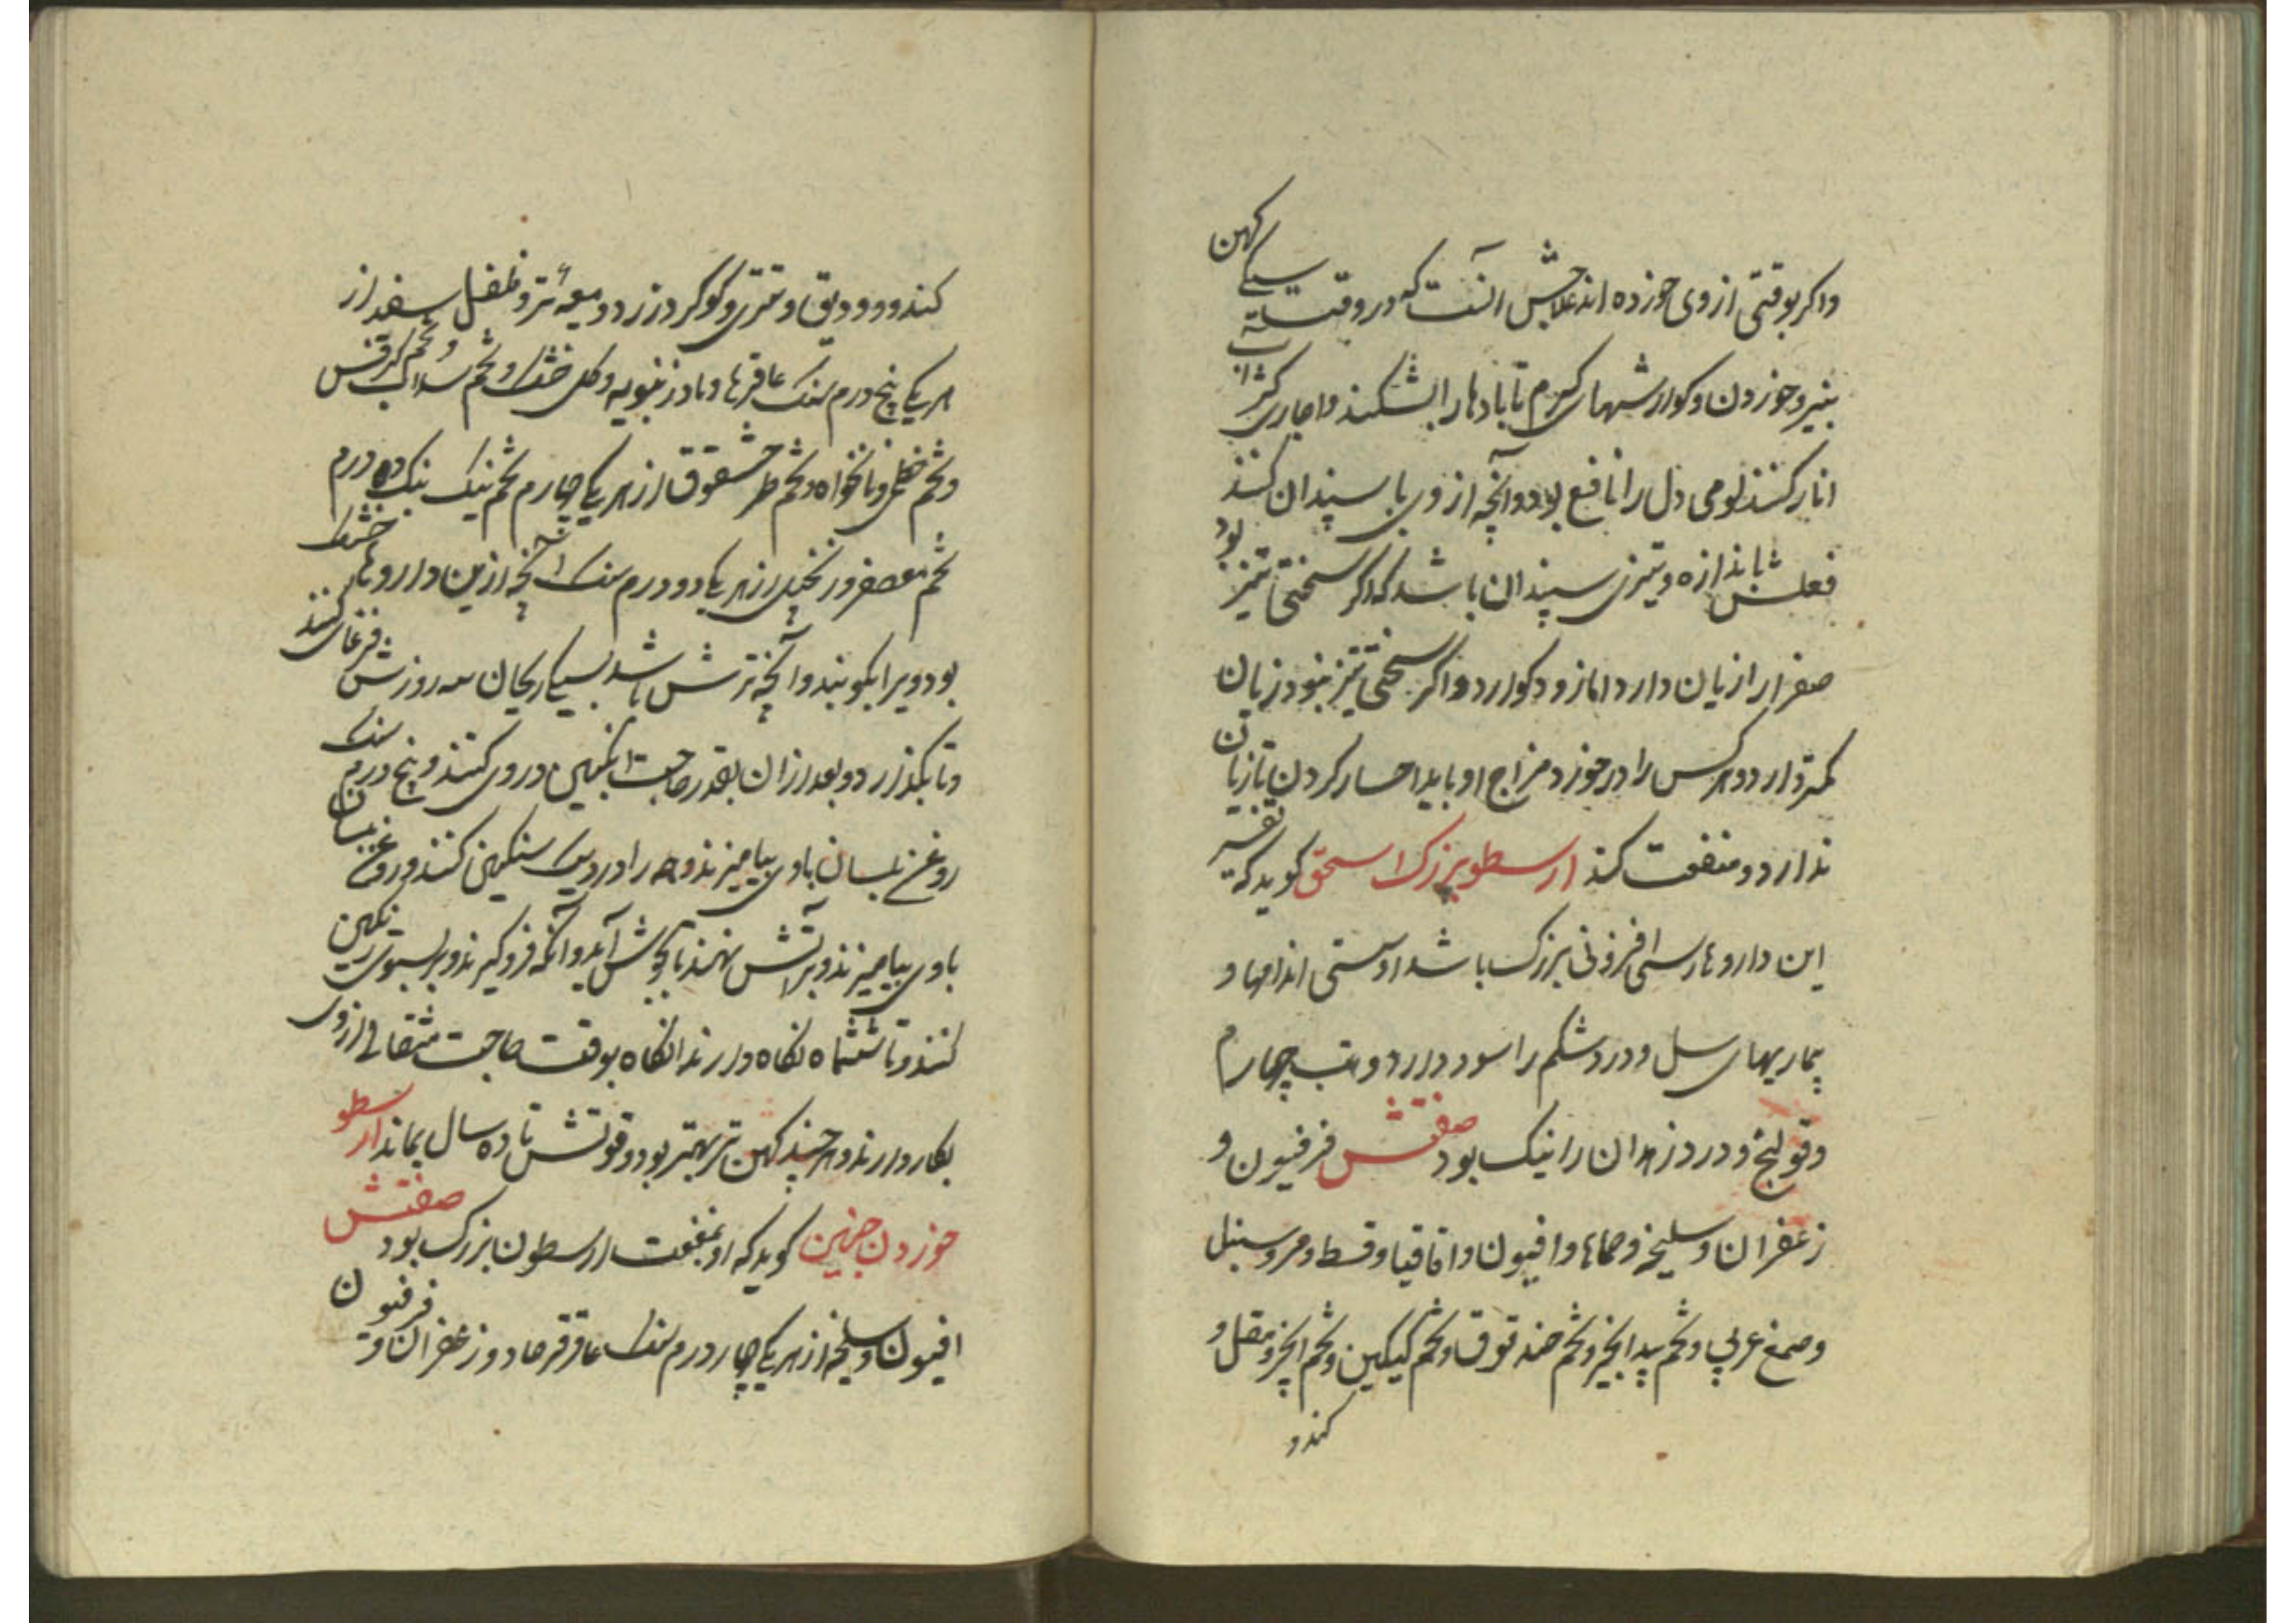 واکر بوقتی ازوی خورده اند علاجش آنست که در وقت سیکی کهن
بنیرو خوردن و کوارشهای کرم تا بادها را بشکند واجاری کژ آب
انار کنند لومی دل را نافع بود و آنچه از وی با سپندان کنند
فعلش باندازه و تیزی سپندان باشد که اکر سختی تیز بود
صفرا را زیان دارد اما زود کوارد و اکر سختی تیز نبود زیان
کمتر دارد و هر کس را در خورد مزاج او باید احسار کردن تا زیان
ندارد و منفعت کند ارسطو بزرک اسحق کوید که تفسیر
این داروها رستی افزونی بزرک باشد او سستی اندامها و
بیماریهای سل و درد شکم را سود دارد و تب چهارم
و قولنج و درد زهدان را نیک بود صفتش فرفیون و
زعفران و سلیخه و حماما و افیون و اقاقیا و قسط و مر و سنبل
و صمغ عربی و تخم بید انجیر و تخم حندقوق و تخم کیکین و تخم انجره و مقل و
کندر و
کندر و و دبق و شتری و کوکرد زرد و میعه تر و فلفل سفید از
هر یکی پنج درم سنک عاقرقرها و مادر زنبویه و کل خشک و تخم سداب و تخم کرفس
و تخم خطمی و نانخواه و تخم طرخشقوق از هر یکی چهارم تخم نیک بنک ده درم
تخم معصفر و زنجبیل از هر یکی دو درم سنک آنچه ازین داروها خشک
بود ویرا بکوبند و آنچه ترش باشد بسیکی ریحان سه روز ترش فرغای کنند
و تا بکذرد و بعد از آن بقدر حاجت انکبین در وی کنند و پنج درم سنک
روغن بلسان با وی بیامیزند و همه را در دیک سنکین کنند و روغن بلسان
با وی بیامیزند و بر آتش نهند تا بجوش آید و آنکه فرو کیرند و بر سبوی رنکین
کنند و تا ششماه نکاه دارند آنکاه بوقت حاجت مثقالی از وی
بکار دارند و هر چند کهن تر بهتر بود و قوتش تا ده سال بماند ارسطو
خوردن جنین کوید که او بمنفعت ارسطون بزرک بود صفتش
افیون و سلیخه از هر یکی چهار درم سنک عاقرقرها و زعفران و فرفیون